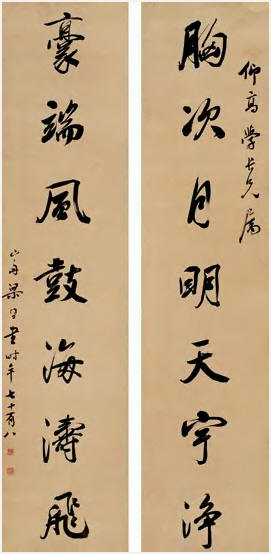 仰高學長兄屬
胸次月明天宇淨
豪端風鼓海濤飛
山舟梁同書時年七十有八